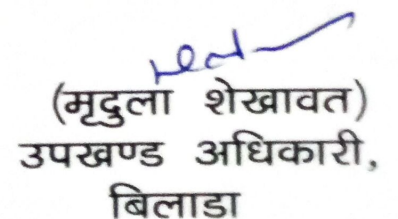 (मृदुला शेखावत)
उपखण्ड अधिकारी,
बिलाडा